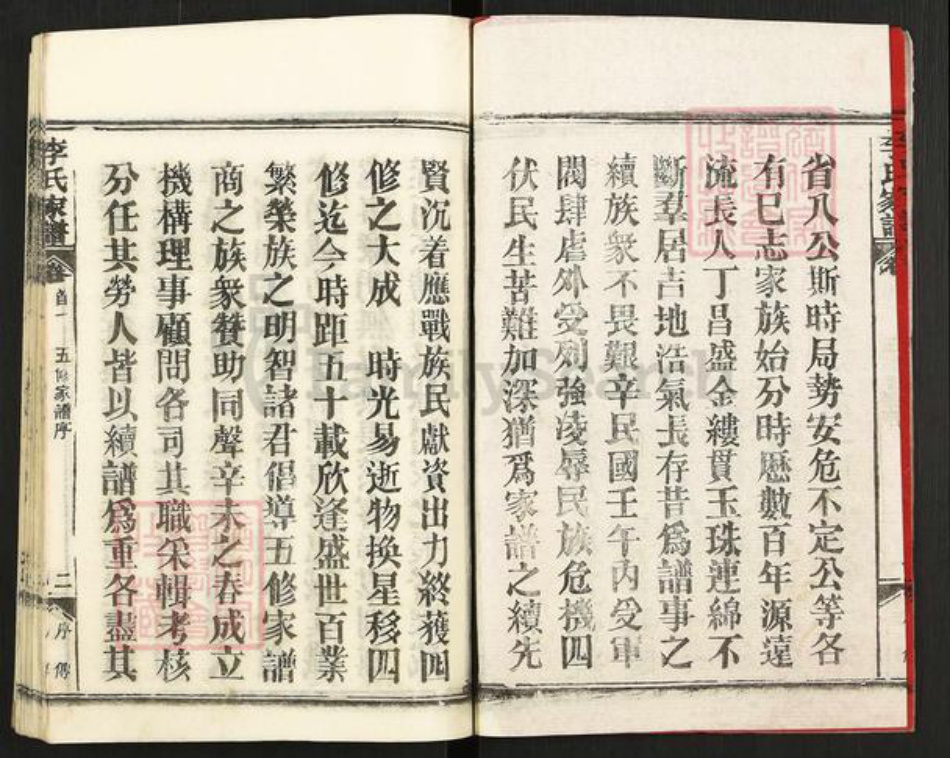 省八公斯時局勢安危不定公等各
有已志家族始分時歷數百年源遠
流長人丁昌盛金縷貫玉珠連綿不
斷羣居吉地浩氣長存昔爲譜事之
續族衆不畏艱辛民國壬午內受軍
閥肆虐外受列強凌辱民族危機四
伏民生苦難加深猶爲家譜之續先
賢沉着應戰族民獻資出力終獲四
修之大成　時光易逝物換星移四
修迄今時距五十載欣逢盛世百業
繁榮族之明智諸君倡導五修家譜
商之族衆贊助同聲辛未之春成立
機構理事顧問各司其職采輯考核
分任其勞人皆以續譜爲重各盡其
李氏家譜
卷首一
五修家譜序
二
序傳
FamilySearch